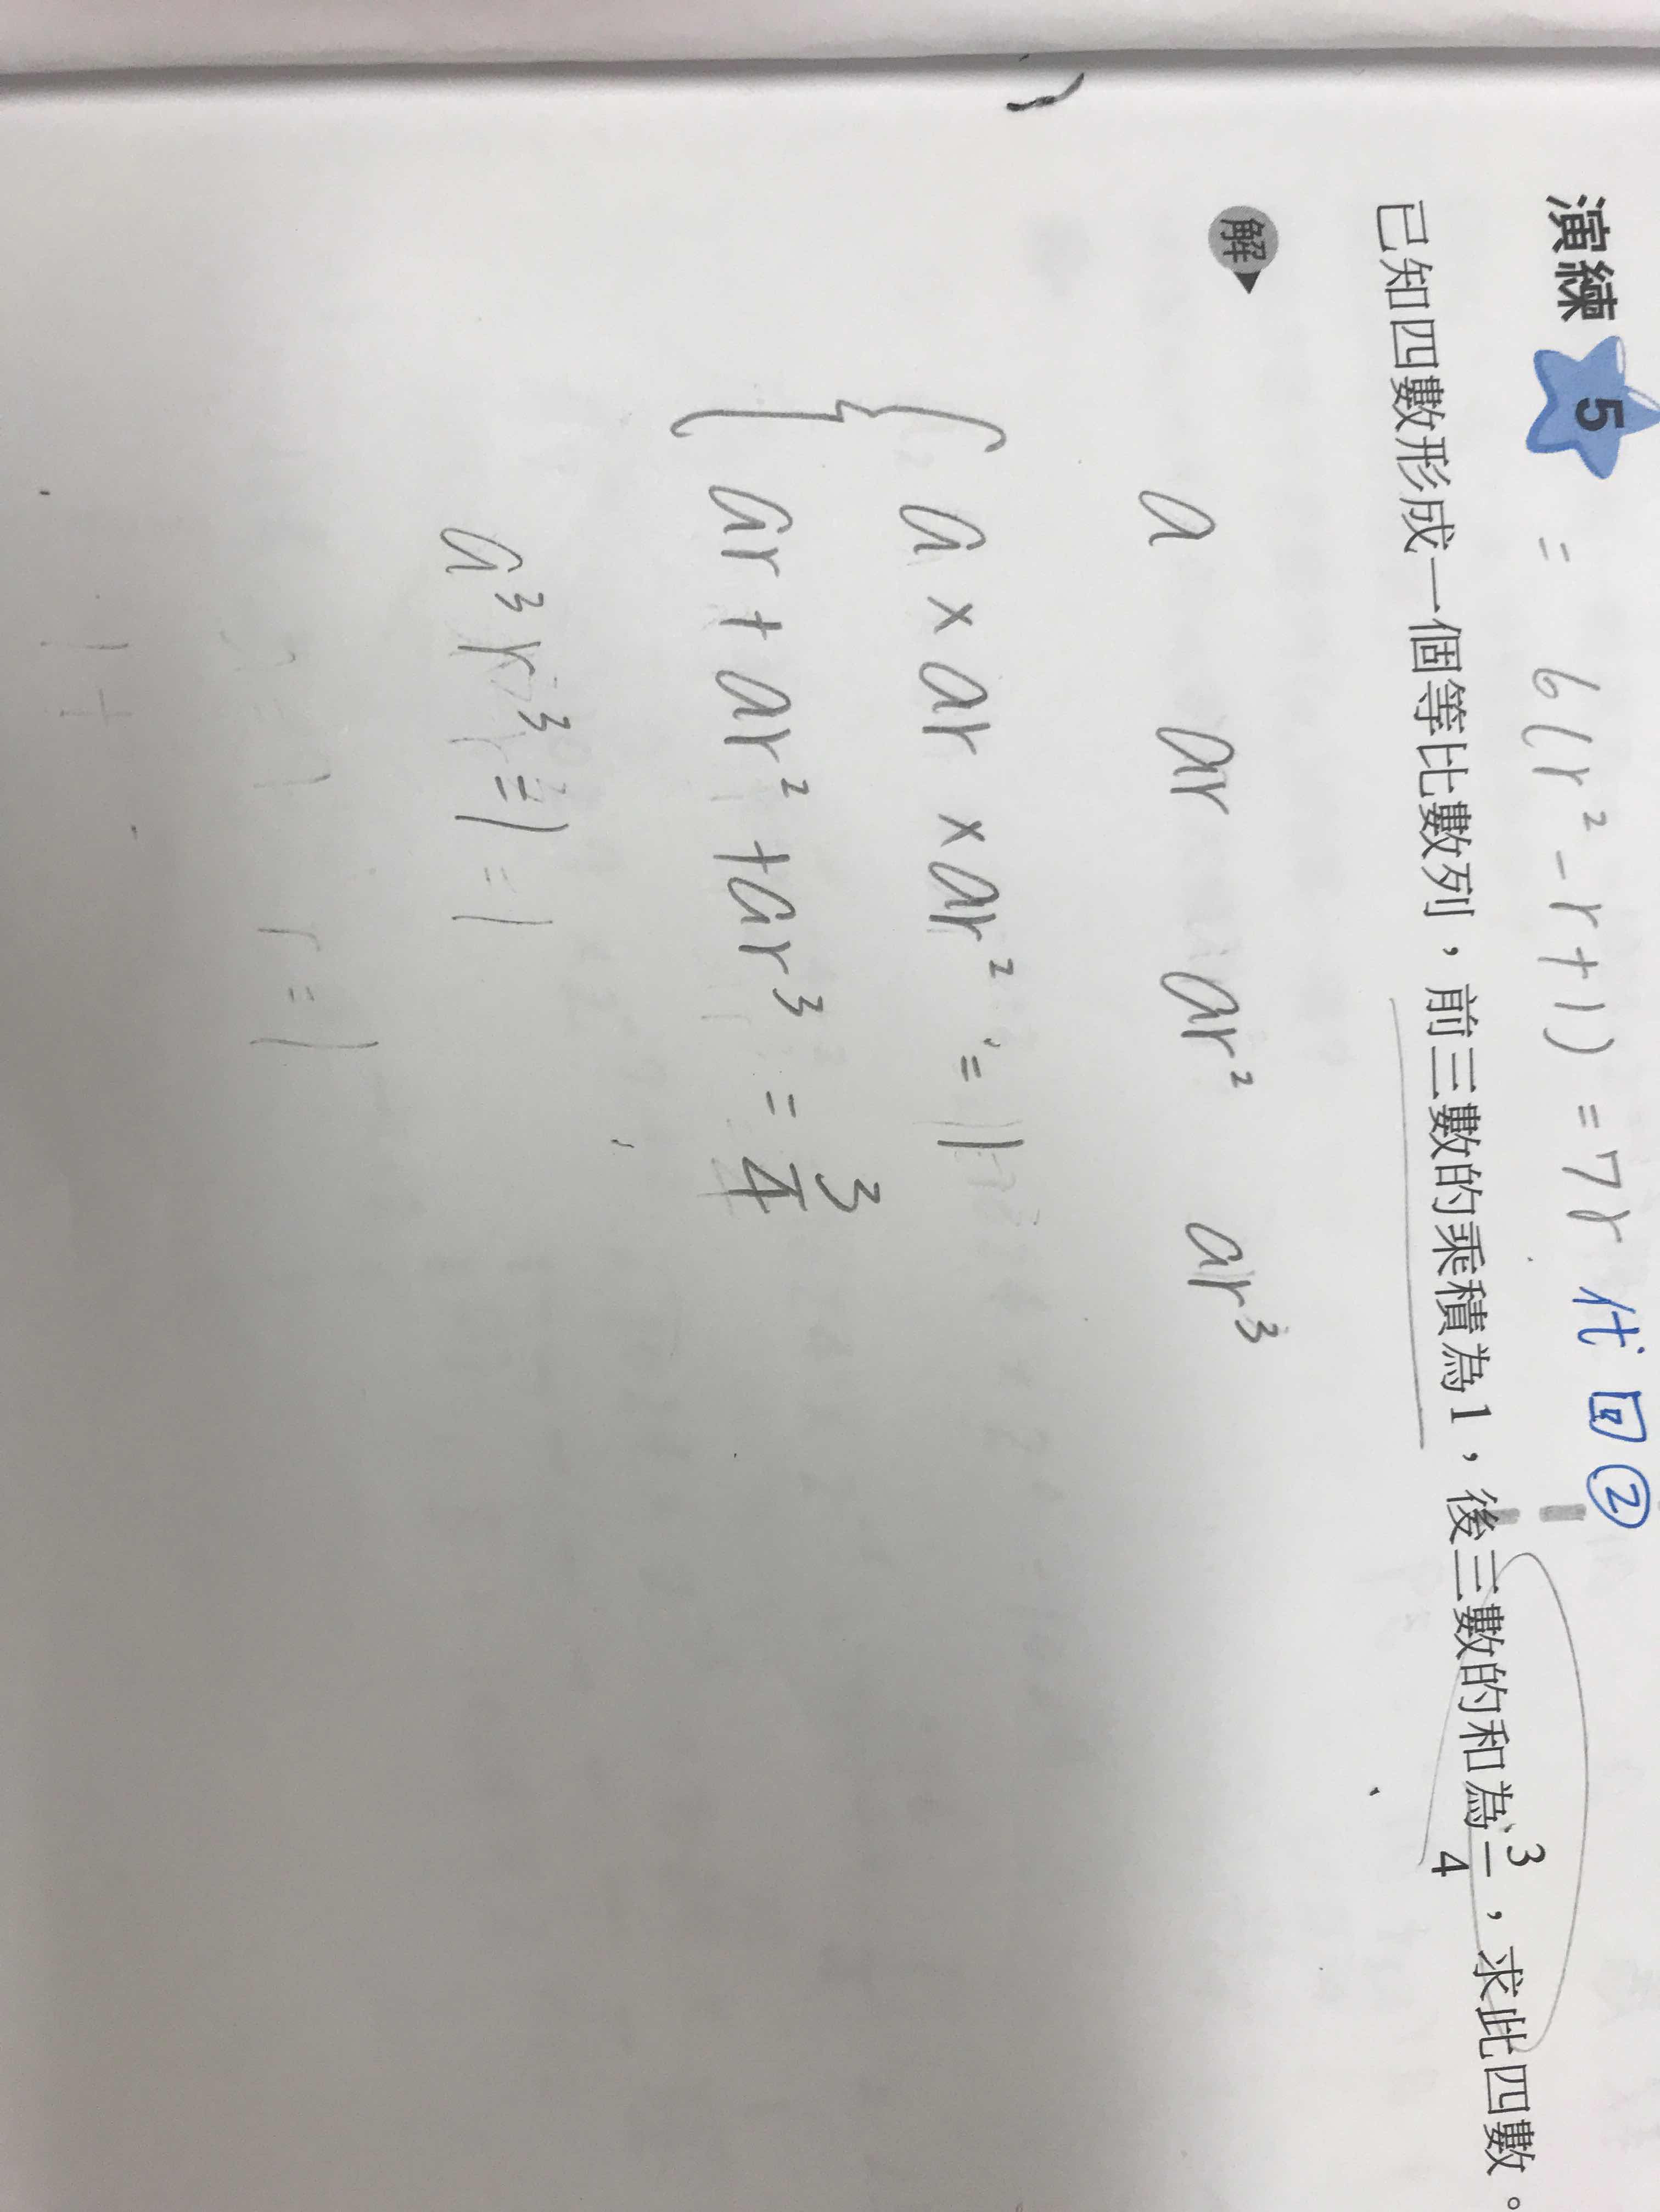 = 6(r² - r + 1) = 7r 代回②
演練 5
已知四數形成一個等比數列，前三數的乘積為1，後三數的和為 3/4，求此四數。
解
a ar ar² ar³
a × ar × ar² = 1
ar + ar² + ar³ = 3/4
a³r³ = 1 = 1
r = 1